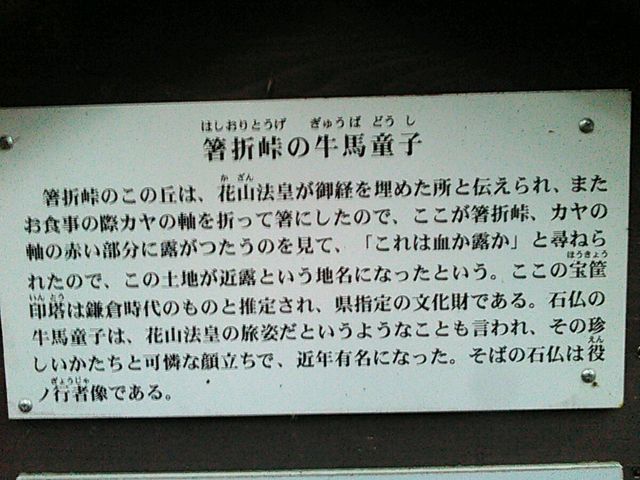 はしおりとうげ ぎゅうば どうし
箸折峠の牛馬童子
か ざん
箸折峠のこの丘は、花山法皇が御経を埋めた所と伝えられ、また
お食事の際カヤの軸を折って箸にしたので、ここが箸折峠、カヤの
軸の赤い部分に露がつたうのを見て、「これは血か露か」と尋ねら
ほうきょう
れたので、この土地が近露という地名になったという。ここの宝篋
いん とう
印塔は鎌倉時代のものと推定され、県指定の文化財である。石仏の
牛馬童子は、花山法皇の旅姿だというようなことも言われ、その珍
しいかたちと可憐な顔立ちで、近年有名になった。そばの石仏は役
えん
ぎょうじゃ
ノ行者像である。